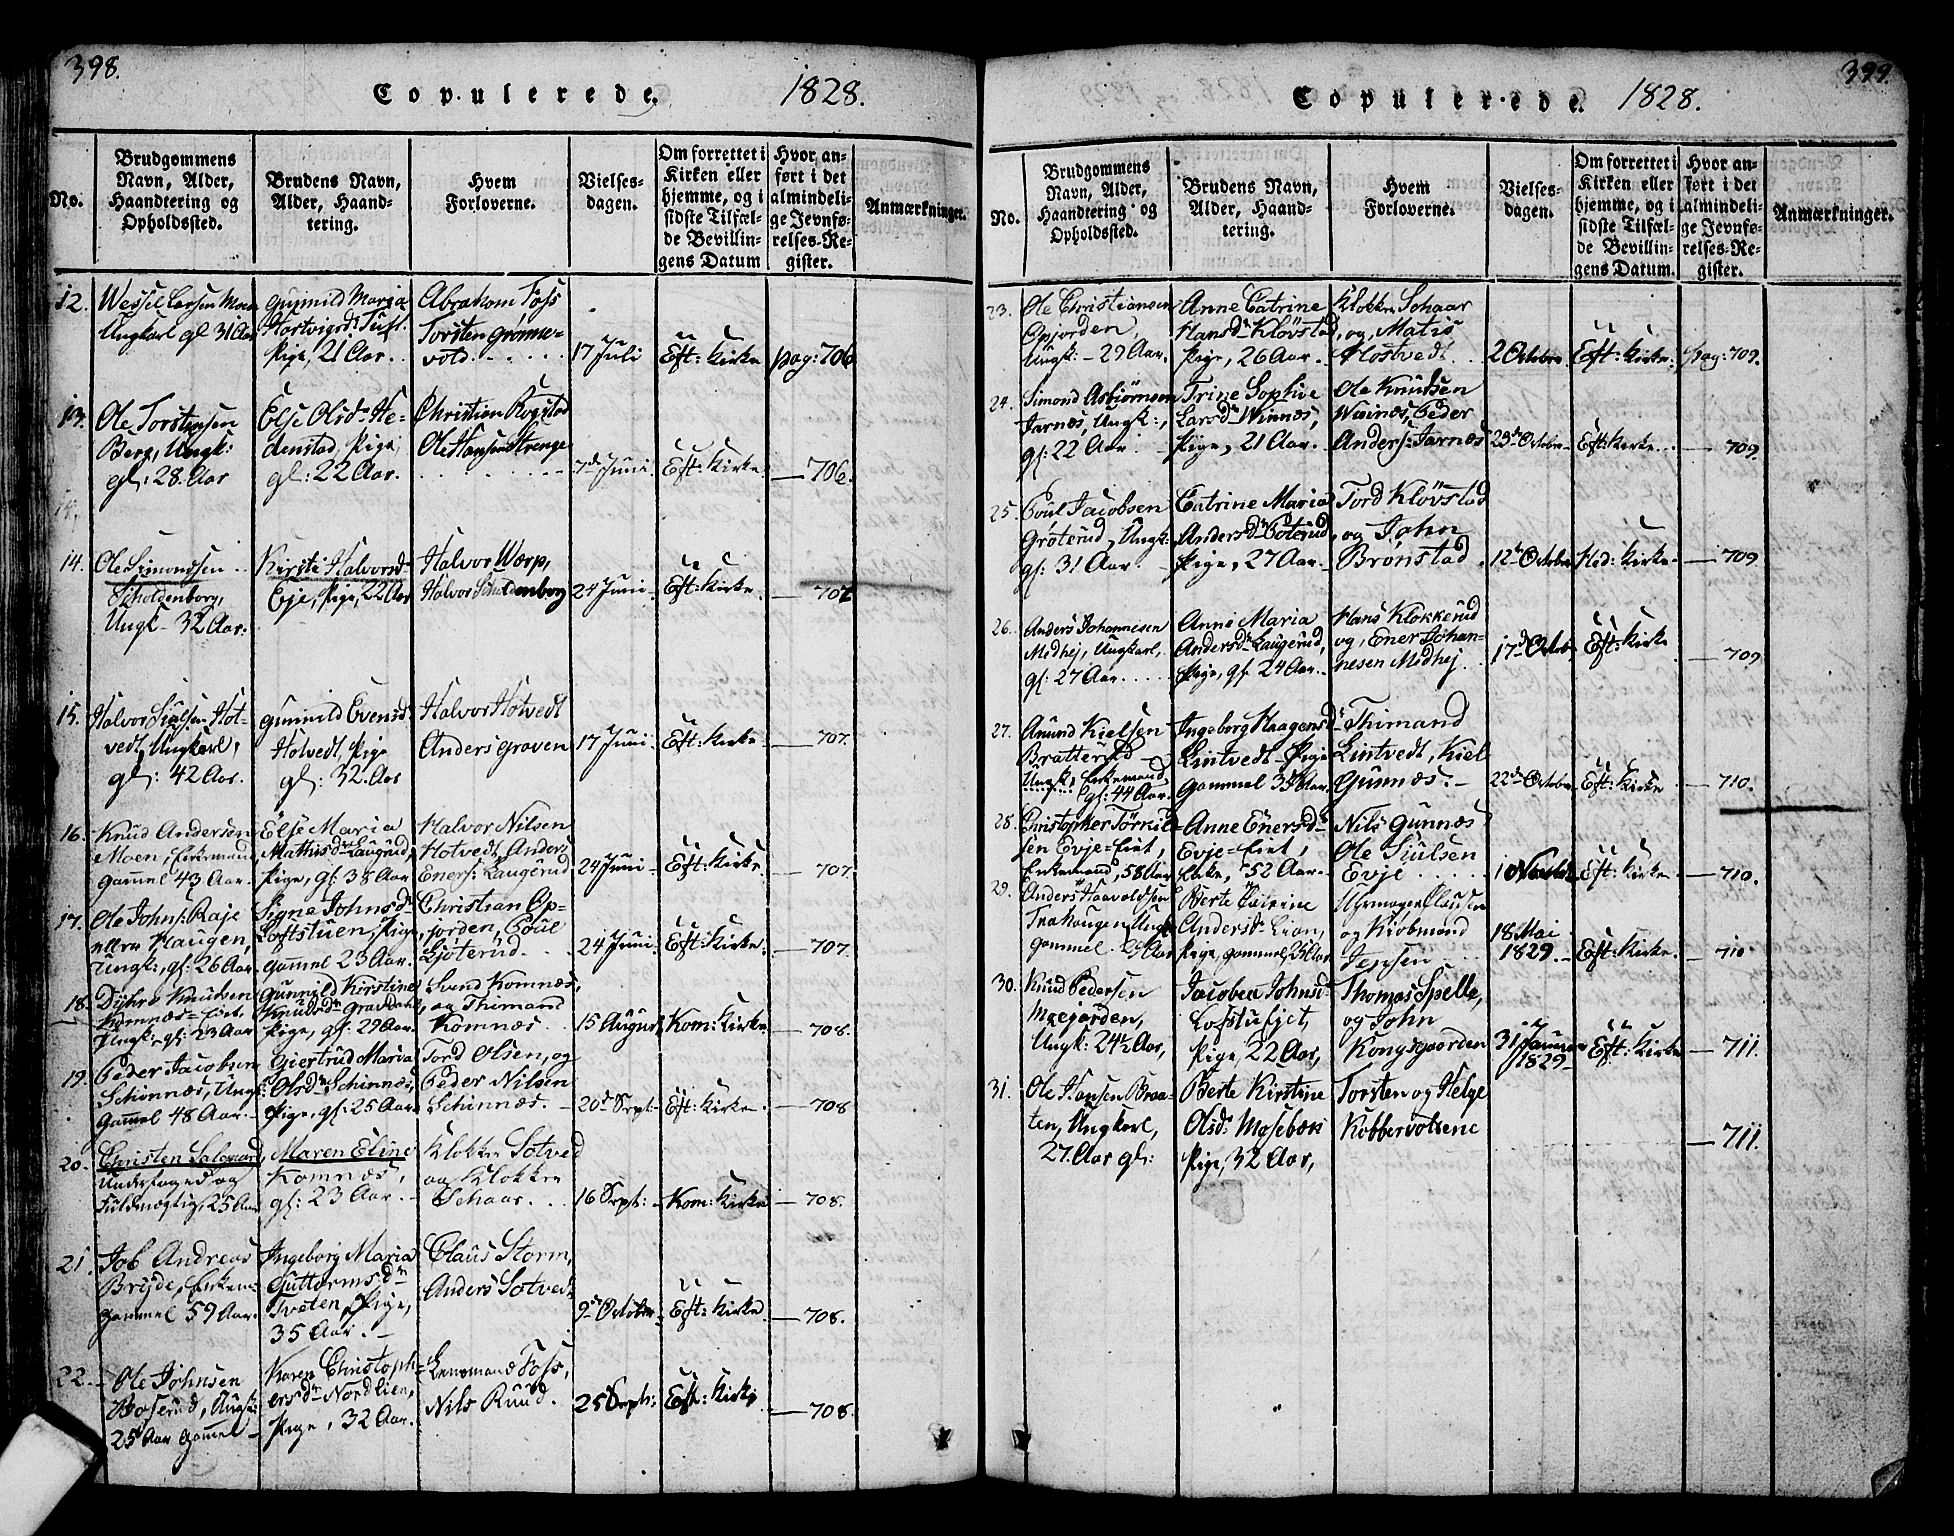 398.
Copulerede. 1828.
No.
Brudgommens
Navn, Alder,
Haandtering og
Opholdssted.
Brudens Navn,
Alder, Haand-
tering.
Hvem
Forloverne.
Vielses-
dagen.
Om forrettet i
Kirken eller
hjemme, og i
sidste Tilfæl-
de Bevillin-
gens Datum
Hvor an-
ført i det
almindeli-
ge Jevnfø-
relses-Re-
gister.
Anmærkninger.
12.
Wessel Larsen Moen
Ungkarl gl 31 Aar
Gunnild Maria
Hartvigsd:
Pige, 21 Aar.
Abraham Foss
Torsten Grønne-
vold
17 Juli
Eft: Kirke
pag: 706
13.
Ole Torstensen
Berg, Ungk:
gl: 28. Aar
Else Olsd: He-
denstad, Pige,
gl: 22 Aar.
Christian Rogstad
Ole Hansen Strenge
7d Juni
Eft: Kirke
706.
14.
14.
Ole Simonssen
Skoldenborg,
Ungk 32 Aar.
Kirsti Halvorsd
Evje, Pige, 22 Aar
Halvor Wærp,
Halvor Skuldenborg
24 Juni
Eft: Kirke
707
15.
Halvor Hot-
vedt, Ungkarl,
gl: 42 Aar.
Gunnild Evensd.
Hotvedt, Pige
gl: 32. Aar
Halvor Hotvedt
Anders Graven
17 Juni
Eft: Kirke
707.
16.
Knud Andersen
Moen, Enkemand
Gammel 43 Aar.
Else Maria
Mathisd: Laugerud,
Pige, gl. 38 Aar
Halvor Nilsen
Hotvedt, Anders
Eners: Laugerud
24 Juni
Eft: Kirke
707.
17.
Ole Johns: Raje
ellers Haugen,
Ungk:, gl: 26 Aar
Signe Johnsd:
Loftstuen, Pige
Gammel 23 Aar.
Christian Op-
jorden, Poul
Gjøterud.
24 Juni
Eft: Kirke.
707.
18.
Dyhre Knudsen
Komnæs-Eiet.
Ungk: gl: 23 Aar
Gunnild Kirstine
Knudsd: Gravdahl,
Pige, gl: 29 Aar.
Svend Komnæs,
og Thimand
Komnæs.
15 August
Kom: Kirke
708.
19.
Peder Jacobsen
Schinnæs, Ungk
Gammel 48 Aar.
Giertrud Maria
Olsd: Schinnæs,
Pige, gl: 25 Aar
Tord Olsen, og
Peder Nilsen
Schinnæs.
20d Sept:
Eft: Kirke.
708
20.
Christen Salgaard,
Underfoged og
Fuldmægtig, 25 Aar
Maren Eline
Komnæs,
gl: 23 Aar.
Klokker Sotved
og Klokker
Schaar.
16 Sept:
Kom: Kirke
708.
21.
Job Andreas
Bryde, Enkem:
Gammel 59 Aar.
Ingeborg Maria
Guttormsd:
Tveten, Pige,
35 Aar.
Claus Storm,
Anders Sotved
9de October
Eft: Kirke
708.
22.
Ole Johnsen
Boserud, Ungk:
25 Aar Gamel
Karen Christoph-
ersd: Nordlien,
Pige, 32 Aar.
Lensmand Foss,
Nils Ruud.
25 Sept:
Eft: Kirke
708.
399.
Copulerede. 1828.
No.
Brudgommens
Navn, Alder,
Haandtering og
Opholdssted.
Brudens Navn,
Alder, Haand-
tering.
Hvem
Forloverne.
Vielses-
dagen.
Om forrettet i
Kirken eller
hjemme, og i
sidste Tilfæl-
de Bevillin-
gens Datum.
Hvor an-
ført i det
almindeli-
ge Jevnfø-
relses-Re-
gister.
Anmærkninger.
23.
Ole Christiansen
Opjorden
Ungk: 29 Aar.
Anne Catrine
Hansd: Kløvstad,
Pige, 26 Aar.
Klokker Schaar
og, Matis
Hostvedt
2 Octobr
Eft: Kirke
pag: 709.
24.
Simond Asbjørnsen
Jarnæs, Ungk:,
gl: 22 Aar
Trine Sophie
Larsd: Winnæs,
Pige, 21 Aar.
Ole Knudsen
Winnæs, Peder
Anders: Jarnæs
23d Octobr
Eft: Kirke
709.
25.
Poul Jacobsen
Grøterud, Ungk:
gl: 31 Aar.
Catrine Maria
Andersd: Poterud,
Pige, 27 Aar
Tord Kløvstad
og John
Brønstad.
12te Octobr
Hed: Kirke
709
26.
Anders Johannesen
Medhej, Ungkarl,
gl: 27 Aar.
Anne Maria
Andersd: Laugerud,
Pige, gl. 24 Aar.
Hans Klokkerud
og, Ener Johan-
nesen Medhej.
17d Octobr
Eft: Kirke
709
27.
Amund Kielsen
Bratterud
Ungk:, Enkemand,
gl: 44 Aar.
Ingeborg Haagensd:
Lintvedt Pige
Gammel 35 Aar.
Thimand
Lintvedt, Kiel
Gunnæs.
22de Octobr
Eft: Kirke
710.
28.
Christopher Tørkil-
sen Evje-Eiet,
Enkemand, 58 Aar
Anne Enersd:
Evje-Eiet,
Enke, 52 Aar.
Nils Gunnæs
Ole Siulsen
Evje
1 Novbr
Eft: Kirke
710.
29.
Anders Haavoldsen
Trahaugen, Ungk
Gammel Aar
Berte Catrine
Andersd: Lien,
Pige, Gammel Aar
Clausen
og Kiøbmand
Jepsen
18 Mai
1829.
Eft: Kirke.
710
30.
Knud Pedersen
Moegorden,
Ungk: 24½ Aar,
Jacobea Johnsd
Lofstufjet,
Pige, 22 Aar,
Thomas Spelle,
og John
Kongsgaarden
31te Januar
1829
Eft: Kirke
711.
31.
Ole Hansen Braa-
ten, Ungkarl,
27. Aar gl:
Berte Kirstine
Olsd: Mosebæk
Pige, 32 Aar,
Torsten og Helge
Kobbervolsene
711.